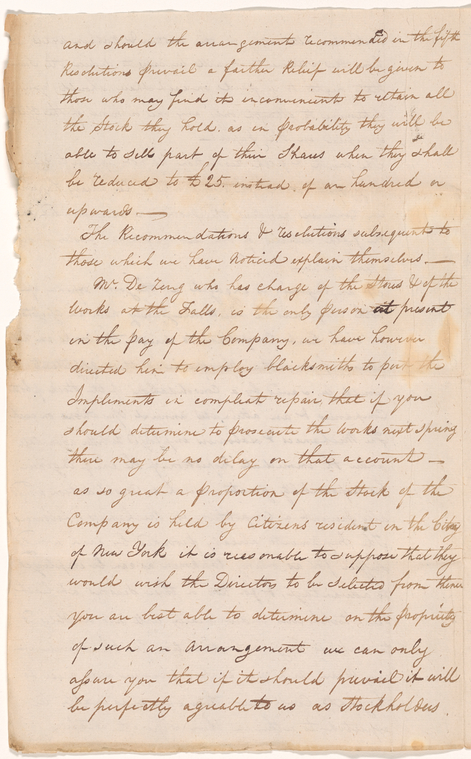 and should the arrangements recommended in the fifth
Resolutions prevail a farther Relief will be given to
those who may find it inconvenient to retain all
the Stock they hold. as in probability they will be
able to sell part of their Shares when they shall
be reduced to £25. instead of an hundred or
upwards.—
The Recommendations & resolutions subsequent to
those which we have Noticed explain themselves.—
Mr. De Zeng who has charge of the Stores & of the
Works at the Falls. is the only person at present
in the pay of the Company, we have however
directed him to employ blacksmiths to put the
Implements in compleat repair that if you
should determine to prosecute the Works next spring
there may be no delay on that account—
as so great a proportion of the Stock of the
Company is held by Citizens resident in the City
of New York it is reasonable to suppose that they
would wish the Directors to be selected from them
you are best able to determine on the propriety
of such an arrangement we can only
assure you that if it should prevail it will
be perfectly agreable to us as Stockholders.